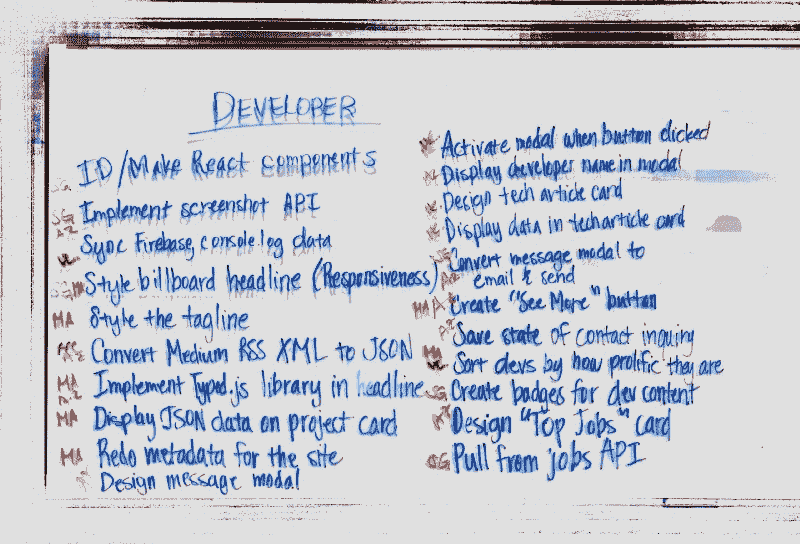 DEVELOPER
ID/Make React components
SG Implement screenshot API
Sync Firebase, console log data
Style billboard headline (Responsiveness)
MA Style the tagline
Convert Medium RSS XML to JSON
MA Implement Typed.js library in headline
MA Display JSON data on project card
MA Redo metadata for the site
Design message modal
Activate modal when button clicked
Display developer name in modal
Design tech article card
Display data in tech article card
Convert message modal to
email & send
MA Create "See More" button
Save state of contact inquiry
Sort devs by how prolific they are
SG Create badges for dev content
Design "Top Jobs" card
SG Pull from jobs API